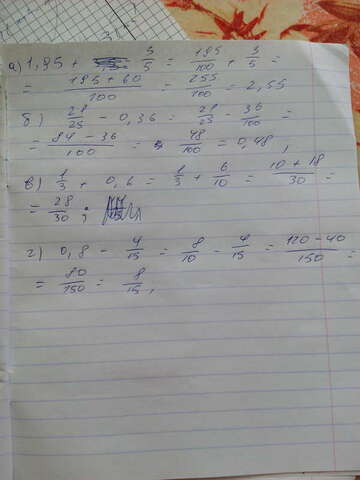 а) 1,95 + 3/5 = 195/100 + 3/5 =
= 195 + 60/100 = 255/100 = 2,55
б) 21/25 - 0,36 = 21/25 - 36/100 =
= 84 - 36/100 = 48/100 = 0,48,
в) 1/3 + 0,6 = 1/3 + 6/10 = 10 + 18/30 =
= 28/30;
г) 0,8 - 4/15 = 8/10 - 4/15 = 120 - 40/150 =
= 80/150 = 8/15,